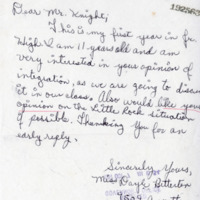 192563
Dear Mr. Knight,
This is my first year in Jr.
High. I am 11 years old and am
very interested in your opinion of
integration, as we are going to discuss
it in our class. Also would like your
opinion on the Little Rock situation
if possible. Thanking you for an
early reply.
Sincerely Yours,
Miss Gayle
1609